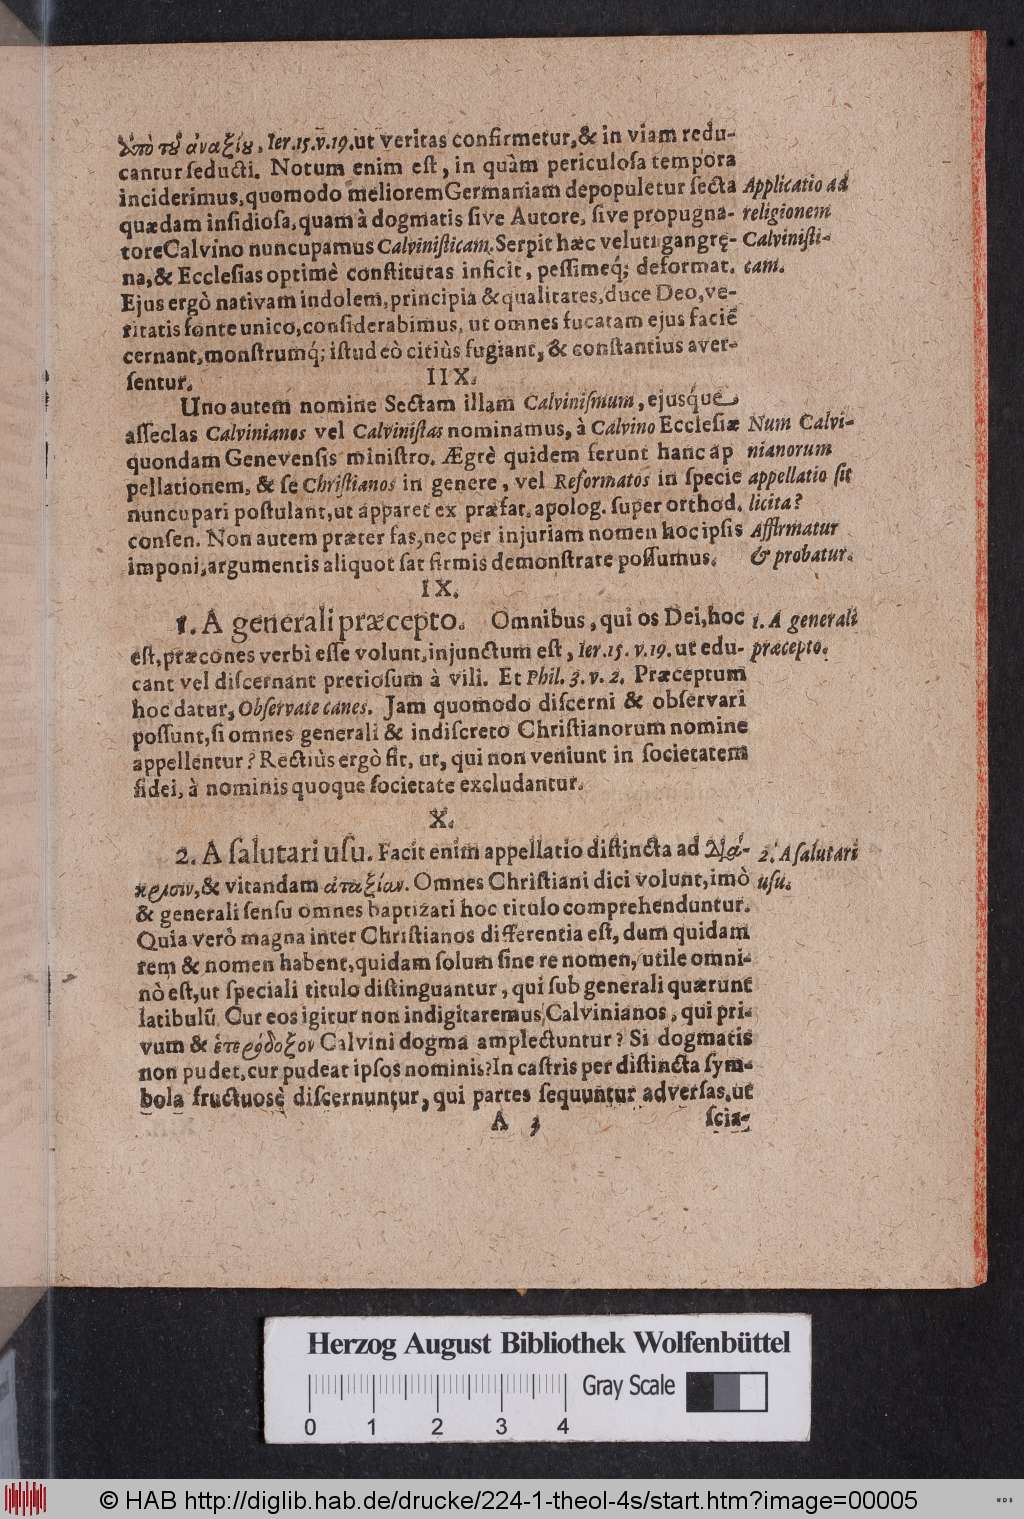 ἀπὸ τοῦ ἀναξίου, Ier. 15. v. 19. ut veritas confirmetur, & in viam redu-
cantur ſeducti. Notum enim eſt, in quàm periculoſa tempora
inciderimus, quomodo meliorem Germaniam depopuletur ſecta
quædam inſidioſa, quam à dogmatis ſive Autore, ſive propugna-
tore Calvino nuncupamus Calviniſticam. Serpit hæc veluti gangrę-
na, & Eccleſias optimè conſtitutas inficit, peſſimeq́; deformat.
Applicatio ad
religionem
Calviniſti-
cam.
Ejus ergò nativam indolem, principia & qualitates, duce Deo, ve-
ritatis fonte unico, conſiderabimus, ut omnes fucatam ejus faciẽ
cernant, monſtrumq́; iſtud eò citiùs fugiant, & conſtantius aver-
ſentur.
IIX.
Uno autem nomine Sectam illam Calviniſmum, ejusqué
aſſeclas Calvinianos vel Calviniſtas nominamus, à Calvino Eccleſiæ
quondam Genevenſis miniſtro. Ægrè quidem ferunt hanc ap
pellationem, & ſe Chriſtianos in genere, vel Reformatos in ſpecie
nuncupari poſtulant, ut apparet ex præfat. apolog. ſuper orthod.
conſen. Non autem præter fas, nec per injuriam nomen hoc ipſis
imponi, argumentis aliquot ſat firmis demonſtrare poſſumus.
Num Calvi-
nianorum
appellatio ſit
licita?
Affirmatur
& probatur.
IX.
1. A generali præcepto. Omnibus, qui os Dei, hoc
eſt, præcones verbi eſſe volunt, injunctum eſt, Ier. 15. v. 19. ut edu-
cant vel diſcernant pretioſum à vili. Et Phil. 3. v. 2. Præceptum
hoc datur, Obſervate canes. Jam quomodo diſcerni & obſervari
poſſunt, ſi omnes generali & indiſcreto Chriſtianorum nomine
appellentur? Rectiùs ergò fit, ut, qui non veniunt in ſocietatem
fidei, à nominis quoque ſocietate excludantur.
1. A generali
præcepto.
X.
2. A ſalutari uſu. Facit enim appellatio diſtincta ad διά-
κρισιν, & vitandam ἀταξίαν. Omnes Chriſtiani dici volunt, imò
& generali ſenſu omnes baptizati hoc titulo comprehenduntur.
Quia verò magna inter Chriſtianos differentia eſt, dum quidam
rem & nomen habent, quidam ſolum ſine re nomen, utile omni-
nò eſt, ut ſpeciali titulo diſtinguantur, qui ſub generali quærunt
latibulũ Cur eos igitur non indigitaremus Calvinianos, qui pri-
vum & ἑτερόδοξον Calvini dogma amplectuntur? Si dogmatis
non pudet, cur pudeat ipſos nominis? In caſtris per diſtincta ſym-
bola fructuosè diſcernuntur, qui partes ſequuntur adverſas, ut
2. A ſalutari
uſu.
A 3
ſcia-
Herzog August Bibliothek Wolfenbüttel
Gray Scale
0 1 2 3 4
© HAB http://diglib.hab.de/drucke/224-1-theol-4s/start.htm?image=00005